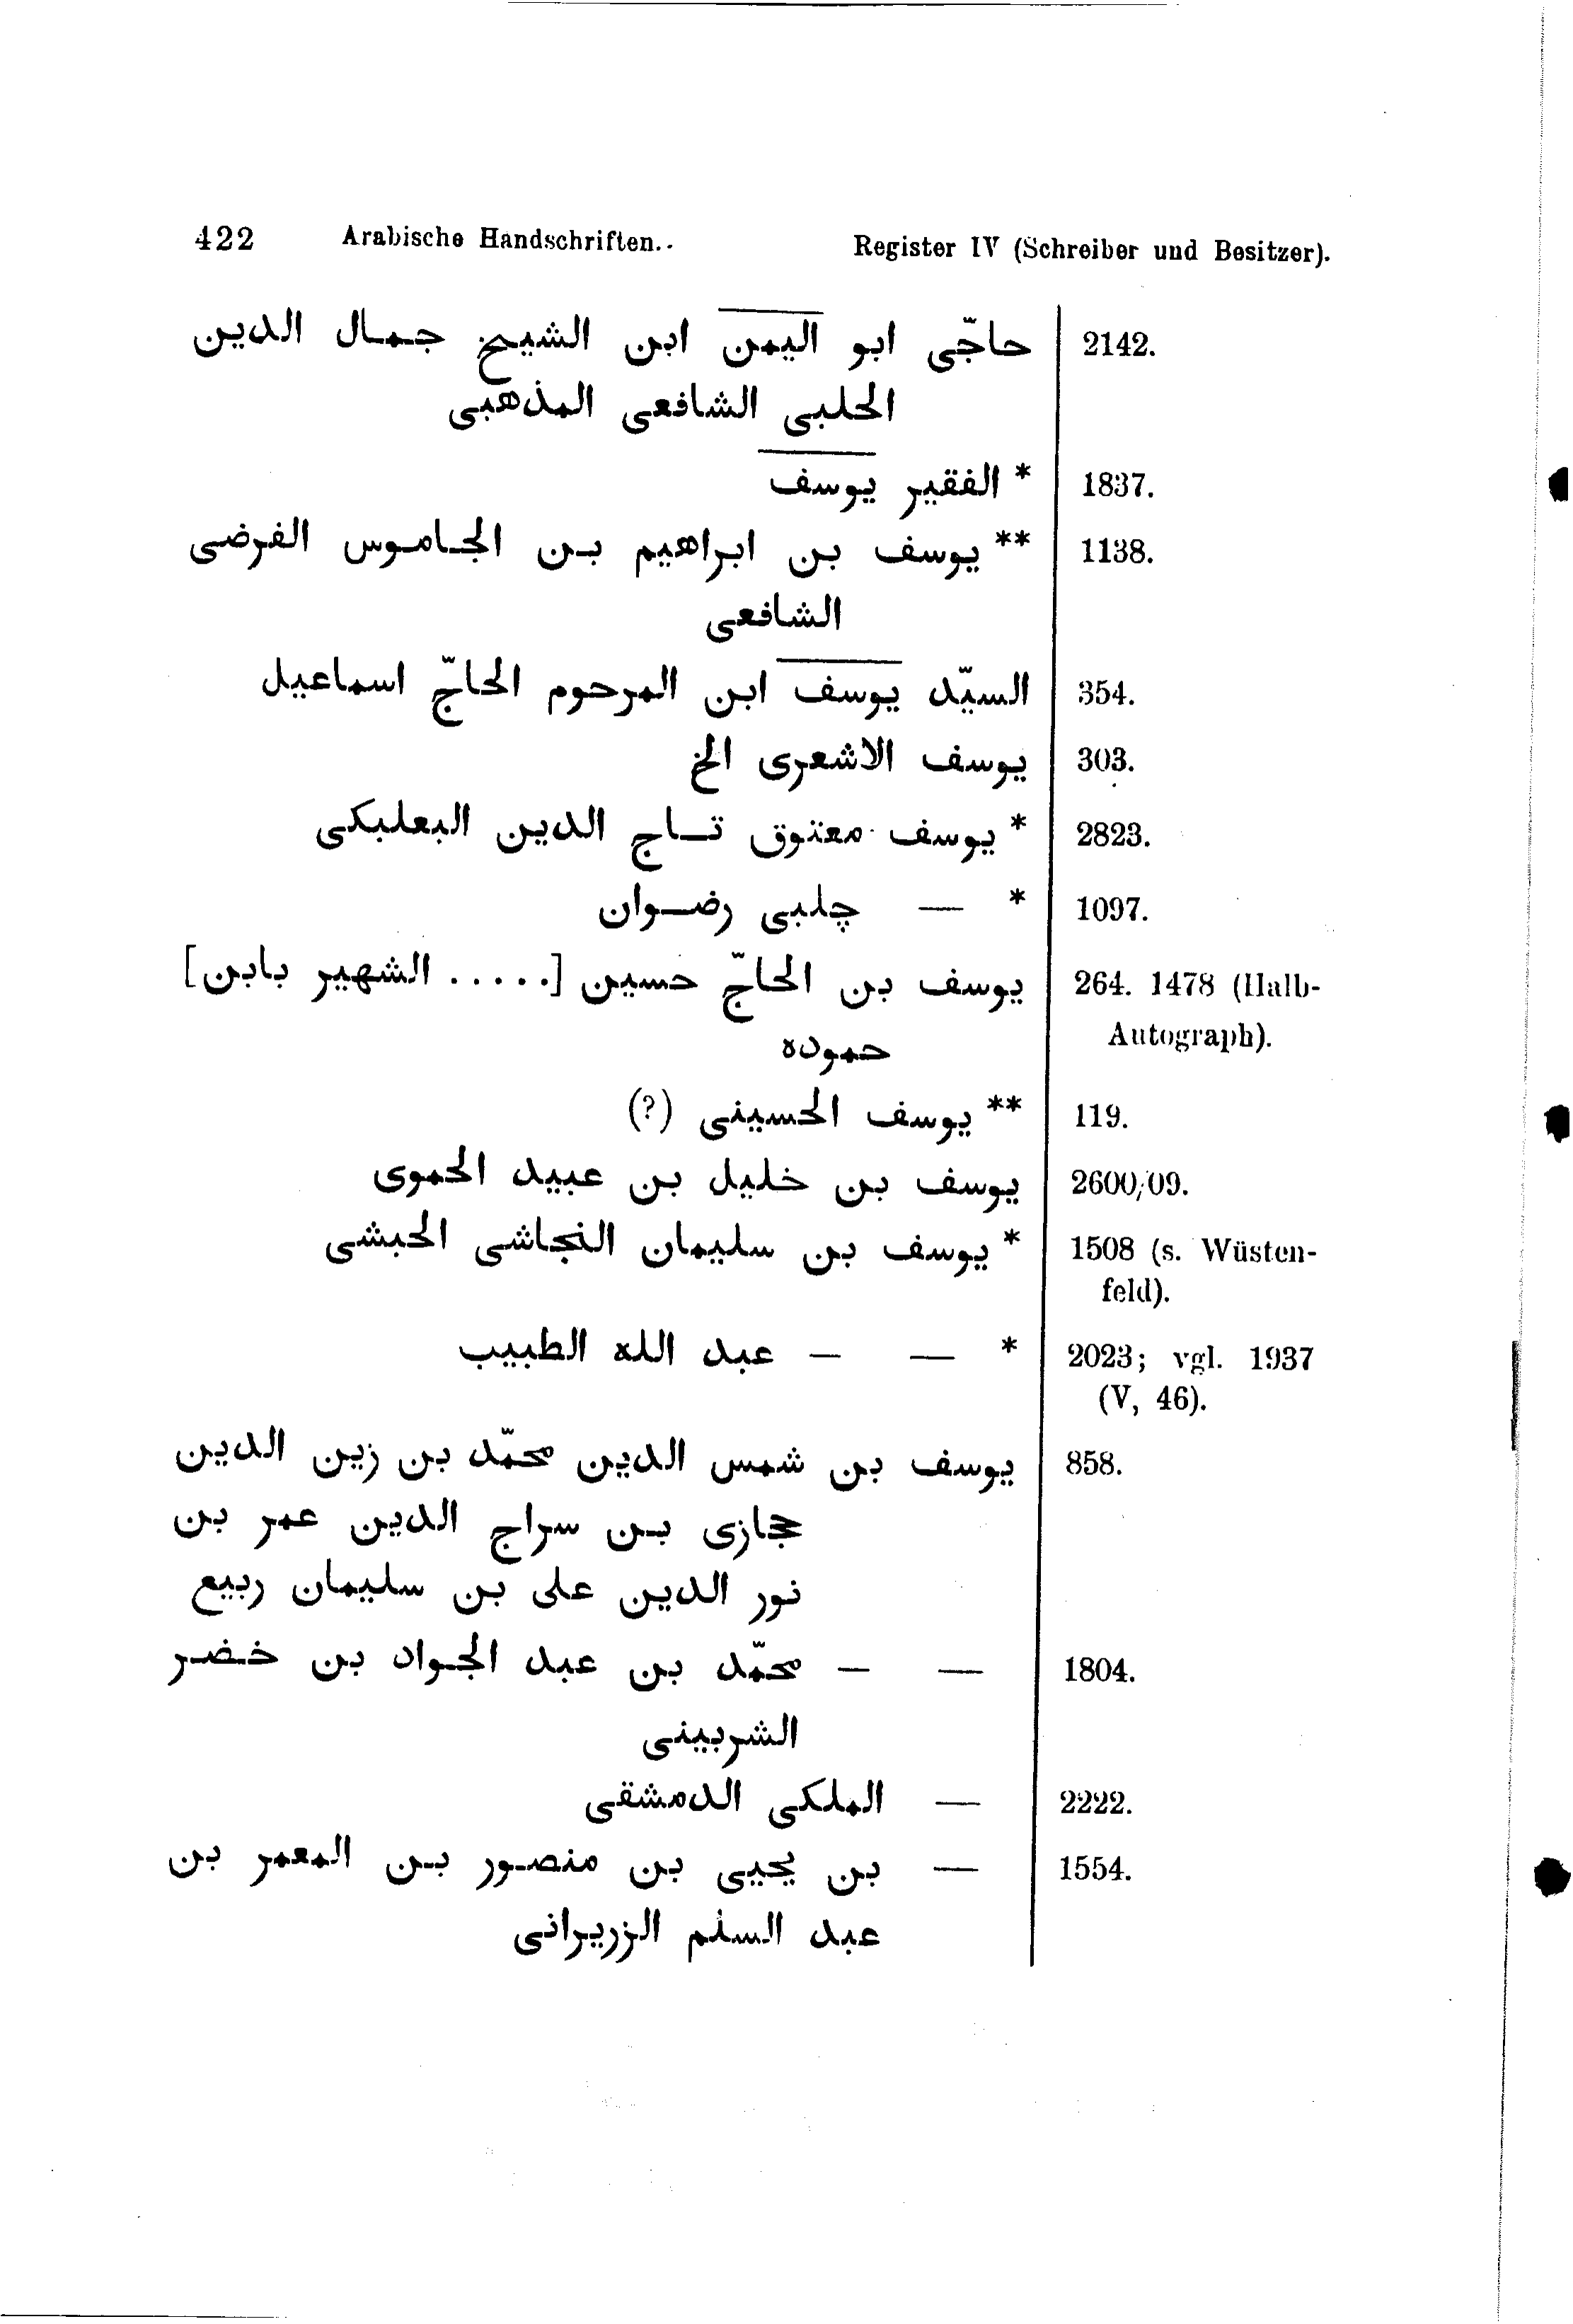 422 Arabische Handschriften. Register IV (Schreiber und Besitzer).
حاجّى ابو اليمن ابن الشيخ جمال الدين 2142.
الحلبى الشافعى المذهبى
* الفقير يوسف 1837.
** يوسف بن ابراهيم بن الجاموس الفرضى 1138.
الشافعى
السيّد يوسف ابن المرحوم الحاجّ اسماعيل 354.
يوسف الاشعرى الخ 303.
* يوسف معتوق تاج الدين البعلبكى 2823.
* — چلبى رضوان 1097.
يوسف بن الحاجّ حسين [..... الشهير بابن] 264. 1478 (Halb-
حموده Autograph).
** يوسف الحسينى (?) 119.
يوسف بن خليل بن عبيد الحموى 2600/09.
* يوسف بن سليمان النجاشى الحبشى 1508 (s. Wüsten-
feld).
* — – عبد الله الطبيب 2023; vgl. 1937
(V, 46).
يوسف بن شمس الدين محمّد بن زين الدين 858.
حجازى بن سراج الدين عمر بن
نور الدين على بن سليمان ربيع
— – محمّد بن عبد الجواد بن خضر 1804.
الشربينى
— الملكى الدمشقى 2222.
— بن يحيى بن منصور بن المعمر بن 1554.
عبد السلم الزريرانى